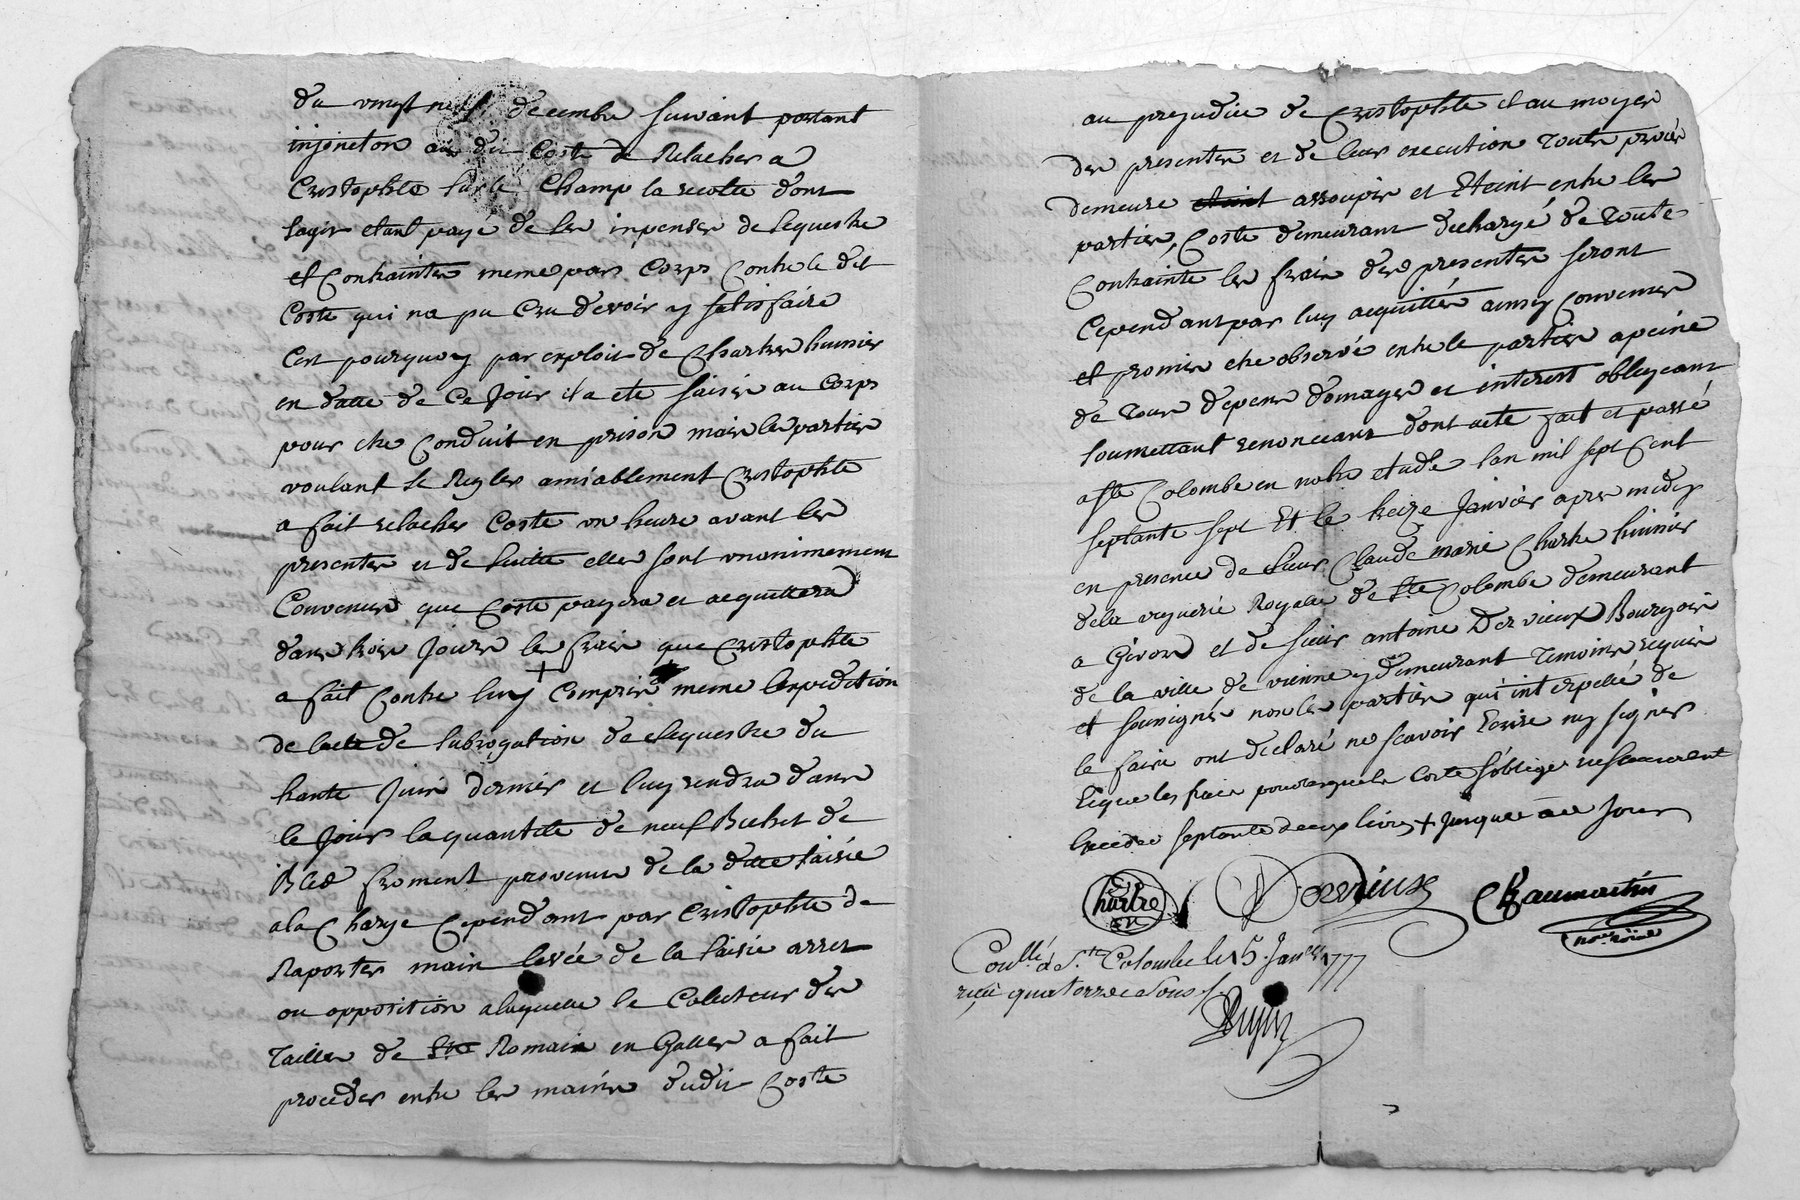 du vingt neuf decembre suivant portant
injonction au dit Coste de Relacher a
Cristophle sur le Champ la recolte dont
sagit etant payé de ses inpenses de sequestre
et Contrainte meme par Corps Contre le dit
Coste qui na pu Cru devoir y satisfaire
Cest pourquoy par exploit de Chartre huissier
en datte de Ce jour il a eté saisie au Corps
pour etre Conduit en prison mais les parties
voulant se Regler amiablement Cristophle
a fait relacher Coste un heure avant les
presentes et de suitte elles sont unanimement
Convenues que Coste payera et acquittera
dans trois jours les frais que Cristophle
a fait Contre luy + Compris meme lexpedition
de lacte de subrogation de sequestre du
trente Juin dernier et luy rendra dans
le jour la quantité de neuf Bichet de
Bled froment provenus de la ditte saisie
a la Charge Cependant par Cristophle de
Raporter main levée de la saisie arret
ou opposition a laquelle le Colecteur des
Tailles de Ste Romain en Galles a fait
proceder entre les mains dudit Coste
au prejudice de Cristophle et au moyer
des presentes et de leur execution toute procés
demeure assoupis et Eteint entre les
parties, Coste demeurant dechargé de toute
Contrainte les frais des presentes seront
Cependant par luy acquittés ainsy Convenues
et promis etre observé entre le parties a peine
de tous depens domages et interest obligeant
soumettant renonceant dont acte fait et passé
a Ste Colombe en notre etude lan mil sept Cent
septante sept Et le treize Janvier apres midy
en presence de sieur Claude marie Chartre huissier
de la viguerie Royalle de Ste Colombe demeurant
a Givors et de sieur antoine Dervieux Bourgois
de la ville de vienne y demeurant Temoins requis
et soussignés non les parties qui interpellé de
le faire ont declaré ne scavoir Ecrire ny signer
Et que les frais pour lesquels Coste soblige
Excede septante deux livres + jusques a ce jour
Chartre
Dervieux
Chaumartin
nore roial
Coullé à Ste Colombe le 15 Janvier 1777
reçu quatorze sous